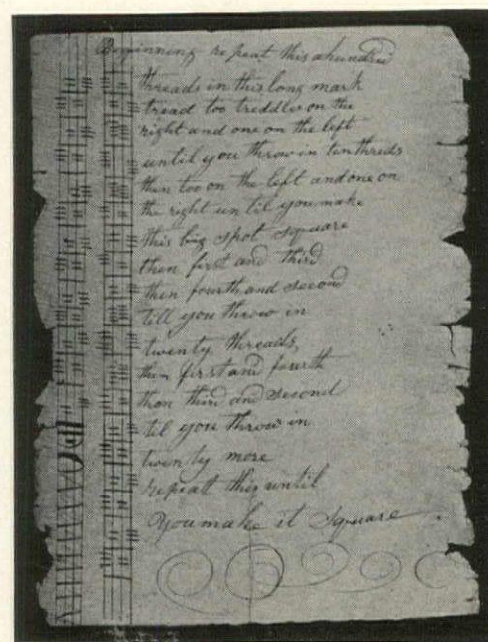 Beginning repeat this a hundred
threads in this long mark
tread too treddles on the
right and one on the left
until you throw in ten threds
then too on the left and one on
the right un til you make
this big spot square
then first and third
then fourth and second
till you throw in
twenty threads
then first and fourth
then third and second
til you throw in
twenty more
repeat this until
you make it square